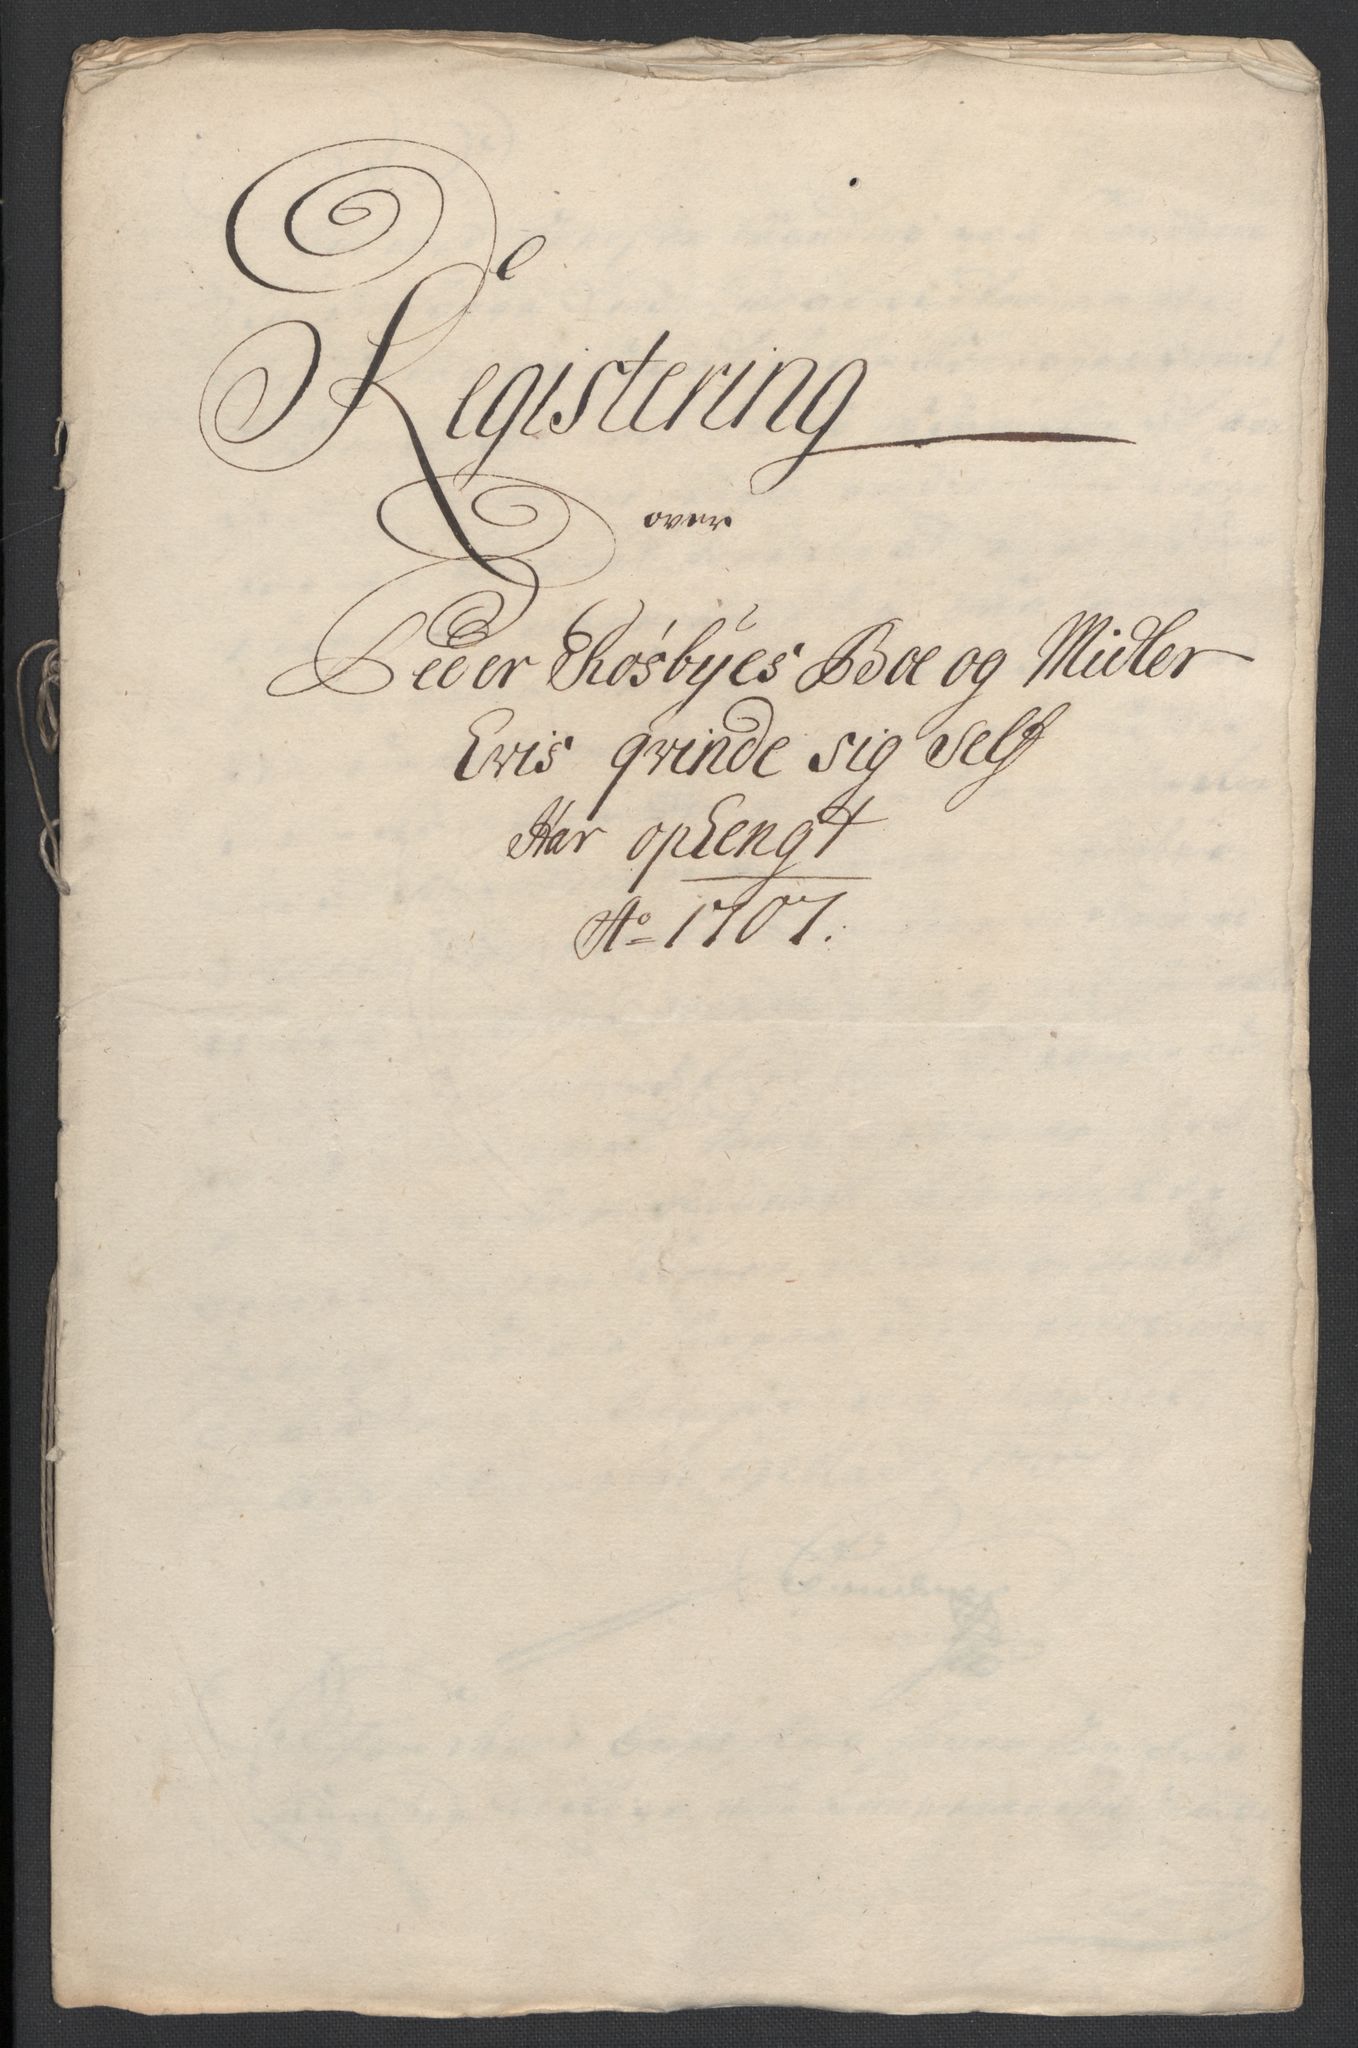 Registering
over
Peder Røsbyes Boe og Midler
Hvis qvinde sig self
Har ophengt
Ao 1707.